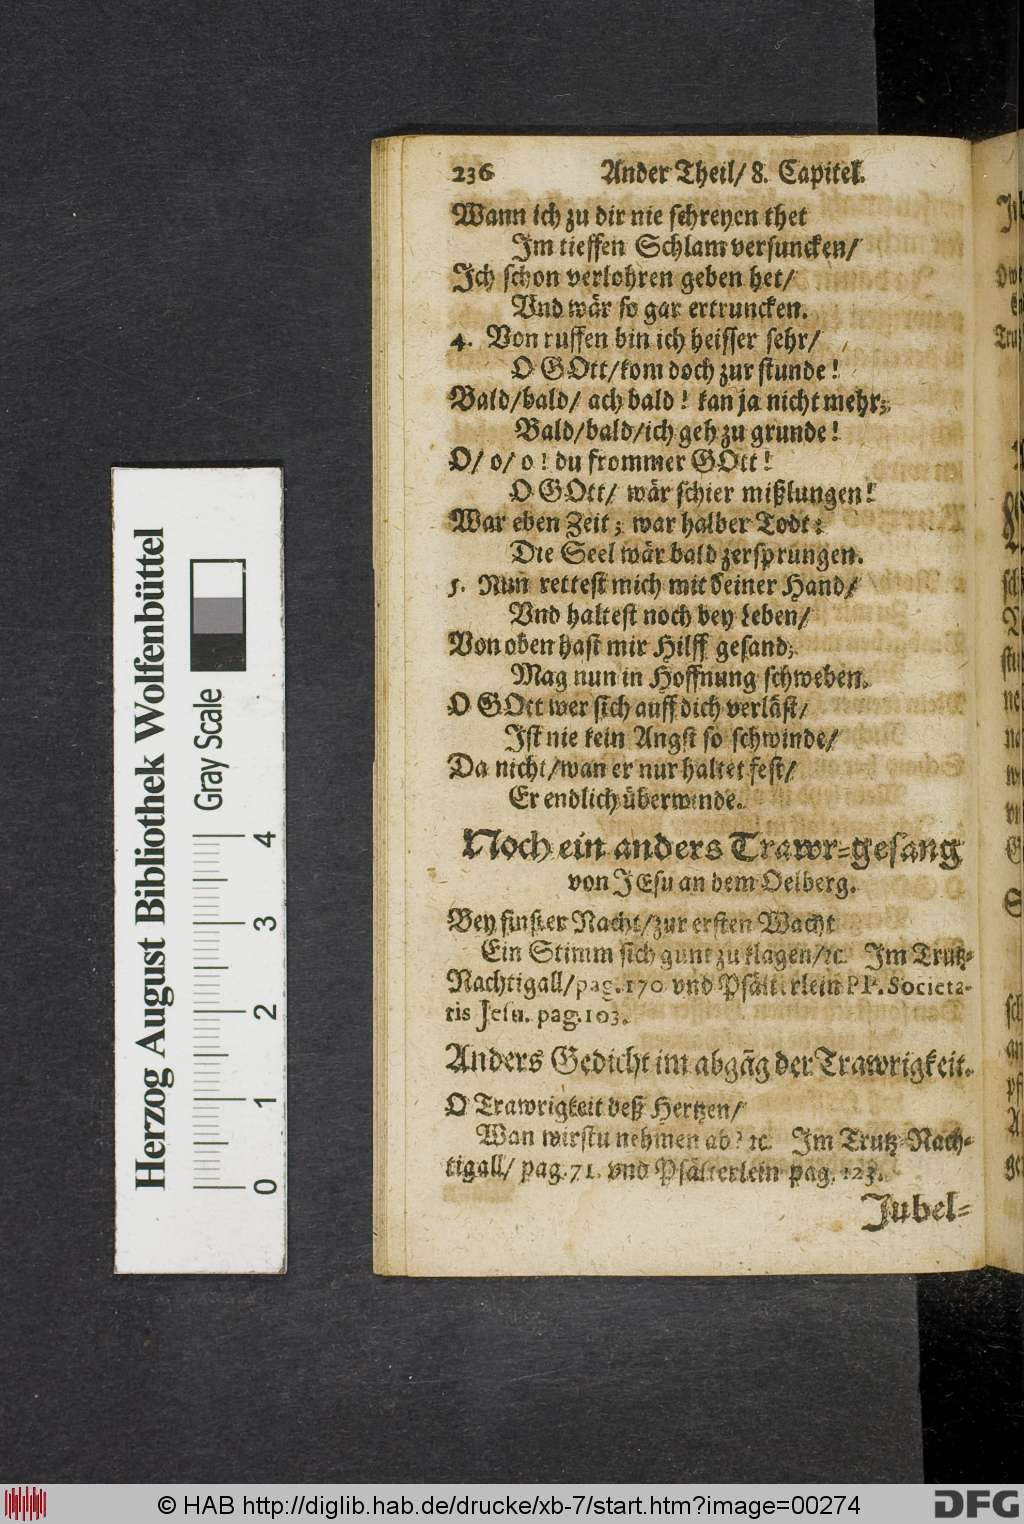 236 Ander Theil/ 8. Capitel.
Wann ich zu dir nie schreyen thet
Im tieffen Schlam versuncken/
Ich schon verlohren geben het/
Vnd wär so gar ertruncken.
4. Von ruffen bin ich heisser sehr/
O GOtt/kom doch zur stunde!
Bald/bald/ ach bald! kan ja nicht mehr;
Bald/bald/ich geh zu grunde!
O/ o/ o! du frommer GOtt!
O GOtt/ wär schier mißlungen!
War eben Zeit; war halber Todt:
Die Seel wär bald zersprungen.
5. Nun rettest mich mit deiner Hand/
Vnd haltest noch bey leben/
Von oben hast mir Hilff gesand;
Mag nun in Hoffnung schweben.
O GOtt wer sich auff dich verläst/
Ist nie kein Angst so schwinde/
Da nicht/wan er nur haltet fest/
Er endlich überwinde.
Noch ein anders Trawr-gesang
von JEsu an dem Oelberg.
Bey finster Nacht/zur ersten Wacht
Ein Stimm sich gunt zu klagen/ꝛc. Im Trutz-
Nachtigall/pag.170 vnd Psälterlein PP. Societa-
tis Jesu. pag.103.
Anders Gedicht im abgāg der Trawrigkeit.
O Trawrigkeit deß Hertzen/
Wan wirstu nehmen ab? ꝛc. Im Trutz-Nach-
tigall/ pag.71. vnd Psälterlein pag. 123.
Jubel-
Herzog August Bibliothek Wolfenbüttel
Gray Scale
0 1 2 3 4
© HAB http://diglib.hab.de/drucke/xb-7/start.htm?image=00274
DFG